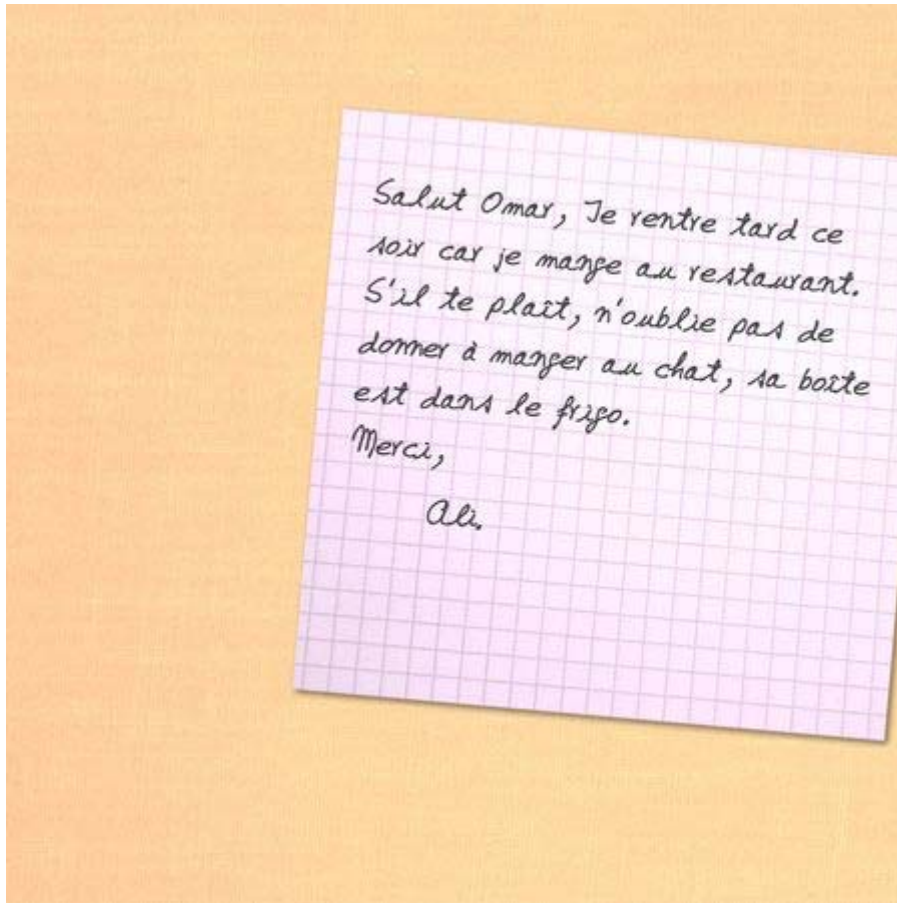 Salut Omar, Je rentre tard ce
soir car je mange au restaurant.
S'il te plaît, n'oublie pas de
donner à manger au chat, sa boîte
est dans le frigo.
Merci,
Ali.